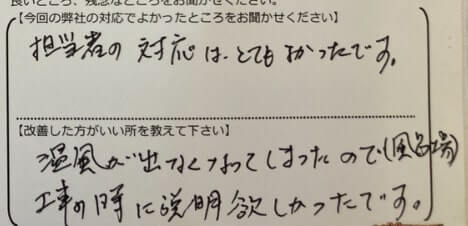 良いところ、残念なところをお聞かせください。
【今回の弊社の対応でよかったところをお聞かせください】
担当者の対応は、とてもよかったです。
【改善した方がいい所を教えて下さい】
温風が出なくなってしまったので(風呂場)
工事の時に説明欲しかったです。